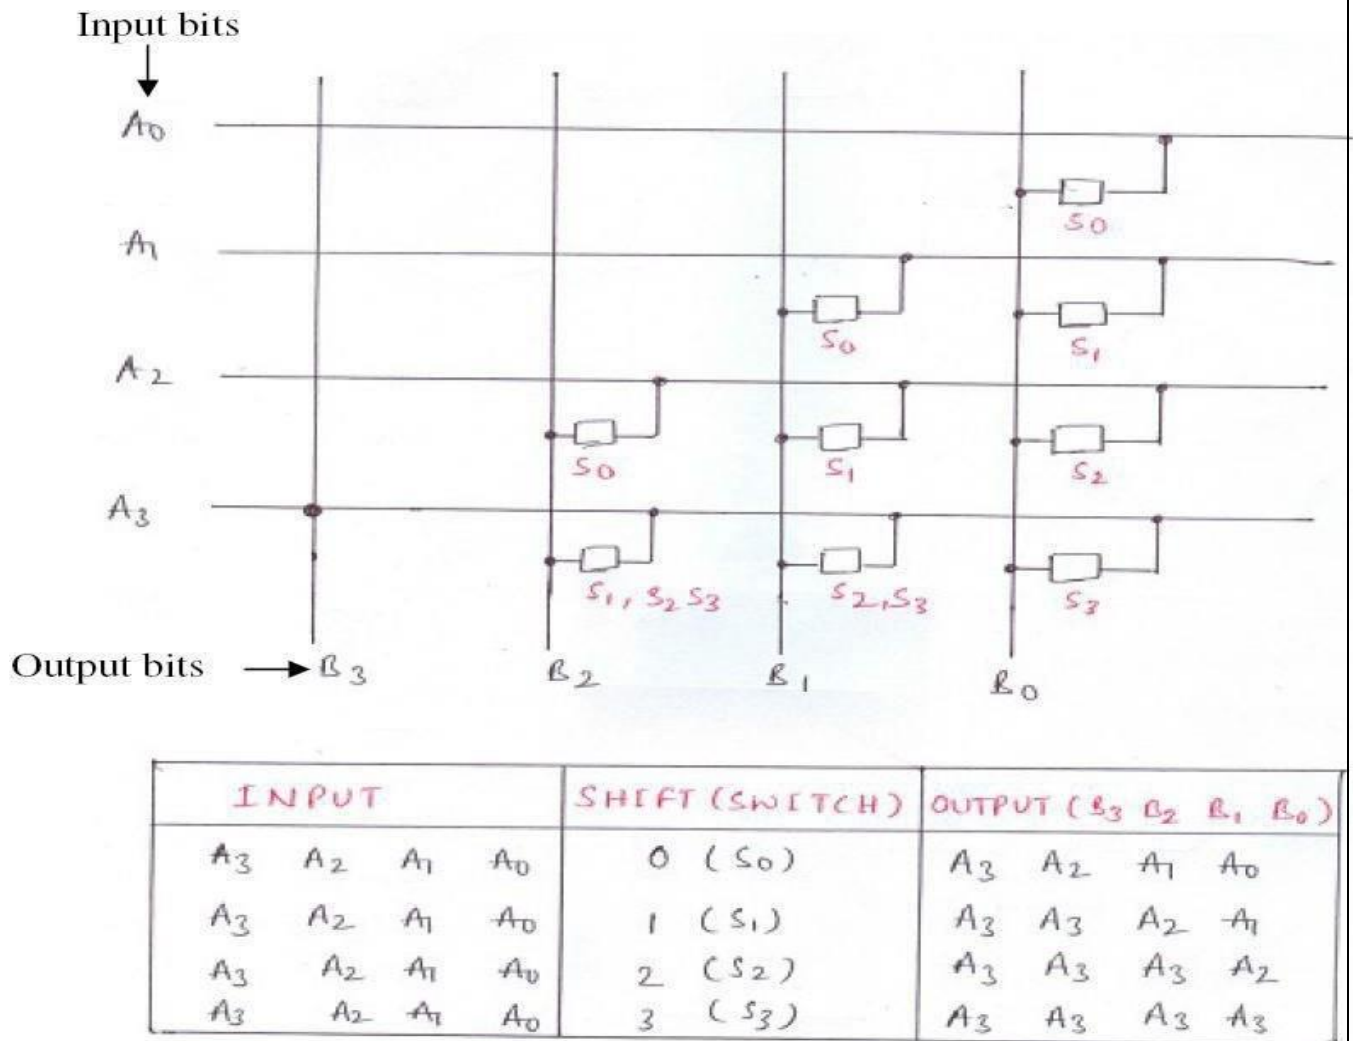 Input bits
A0
S0
A1
S0 S1
A2
S0 S1 S2
A3
S1, S2 S3 S2, S3 S3
Output bits B3 B2 B1 B0
INPUT SHIFT (SWITCH) OUTPUT (B3 B2 B1 B0)
A3 A2 A1 A0 0 (S0) A3 A2 A1 A0
A3 A2 A1 A0 1 (S1) A3 A3 A2 A1
A3 A2 A1 A0 2 (S2) A3 A3 A3 A2
A3 A2 A1 A0 3 (S3) A3 A3 A3 A3